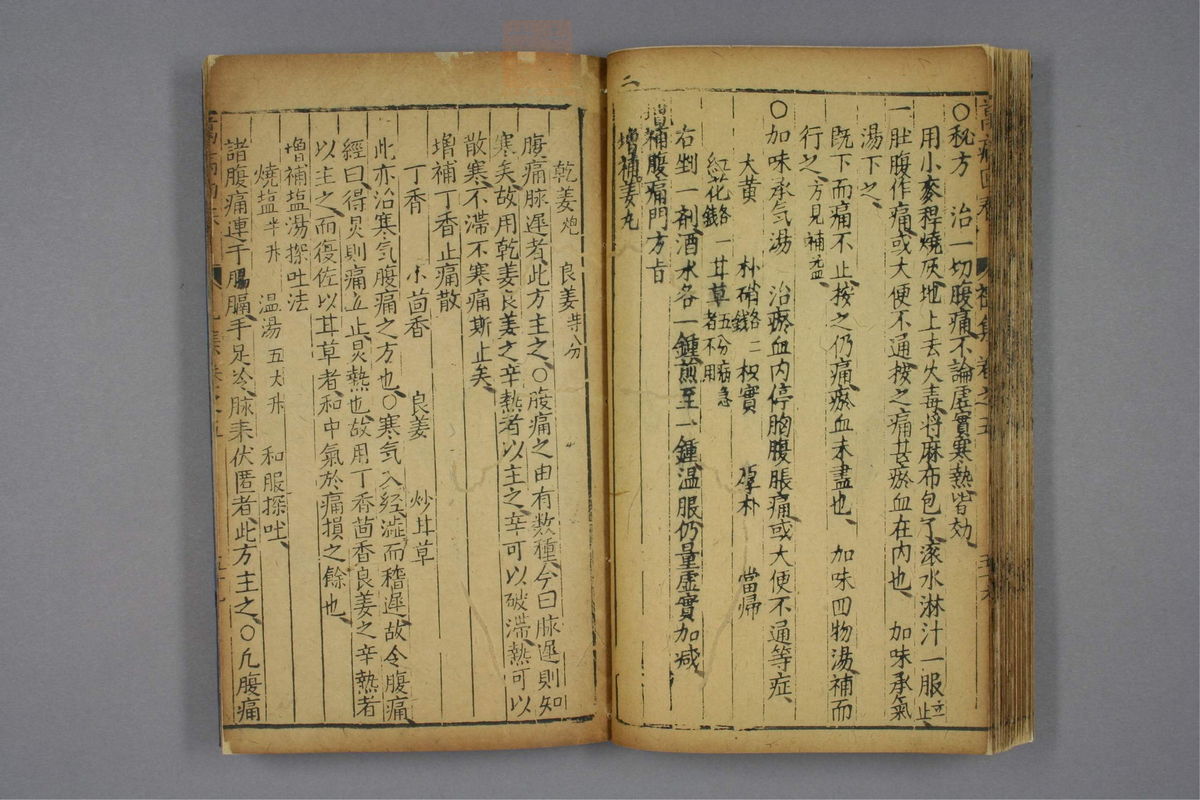 二
〇秘方　治一切腹痛不論虛實寒熱皆効
用小麥稈燒灰地上去火毒將麻布包了滾水淋汁一服立止
一肚腹作痛或大便不通按之痛甚瘀血在內也　加味承氣
湯下之
既下而痛不止按之仍痛瘀血未盡也、加味四物湯補而
行之方見補益
〇加味承气湯　治瘀血內停胸腹脹痛或大便不通等症
大黃　朴硝各二錢　枳實　厚朴　當帰
紅花各一錢　甘草五分病急者不用
右剉一剤酒水各一鍾煎至一鍾溫服仍量虛實加减
增補腹痛門方旨
增補姜丸
乾姜炮　良姜等分
腹痛脉遲者此方主之〇腹痛之由有数種今曰脉遲則知
寒矣故用乾姜良姜之辛熱者以主之辛可以破滞熱可以
散寒不滞不寒痛斯止矣
增補丁香止痛散
丁香　小茴香　良姜　炒甘草
此亦治寒気腹痛之方也〇寒気入経澁而稽遲故令腹痛
經曰得炅則痛立止炅熱也故用丁香茴香良姜之辛熱者
以主之而復佐以甘草者和中氣於痛損之餘也
增補塩湯探吐法
燒塩半升　温湯五大升　和服探吐
諸腹痛連于腸膈手足冷脉来伏匿者此方主之〇凢腹痛